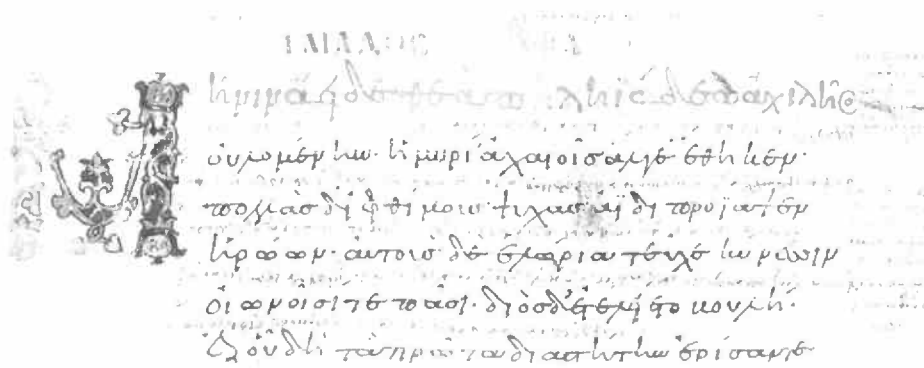 ΙΛΙΑΔΟΣ Α
μῆνιν ἄειδε θεὰ πηληϊάδεω ἀχιλῆος
οὐλομένην· ἡ μυρί' ἀχαιοῖς ἄλγε' ἔθηκεν·
πολλὰς δ' ἰφθίμους ψυχὰς ἄϊδι προΐαψεν
ἡρώων· αὐτοὺς δὲ ἑλώρια τεῦχε κύνεσσιν
οἰωνοῖσί τε πᾶσι· διὸς δ' ἐτελείετο βουλή·
ἐξ οὗ δὴ τὰ πρῶτα διαστήτην ἐρίσαντε